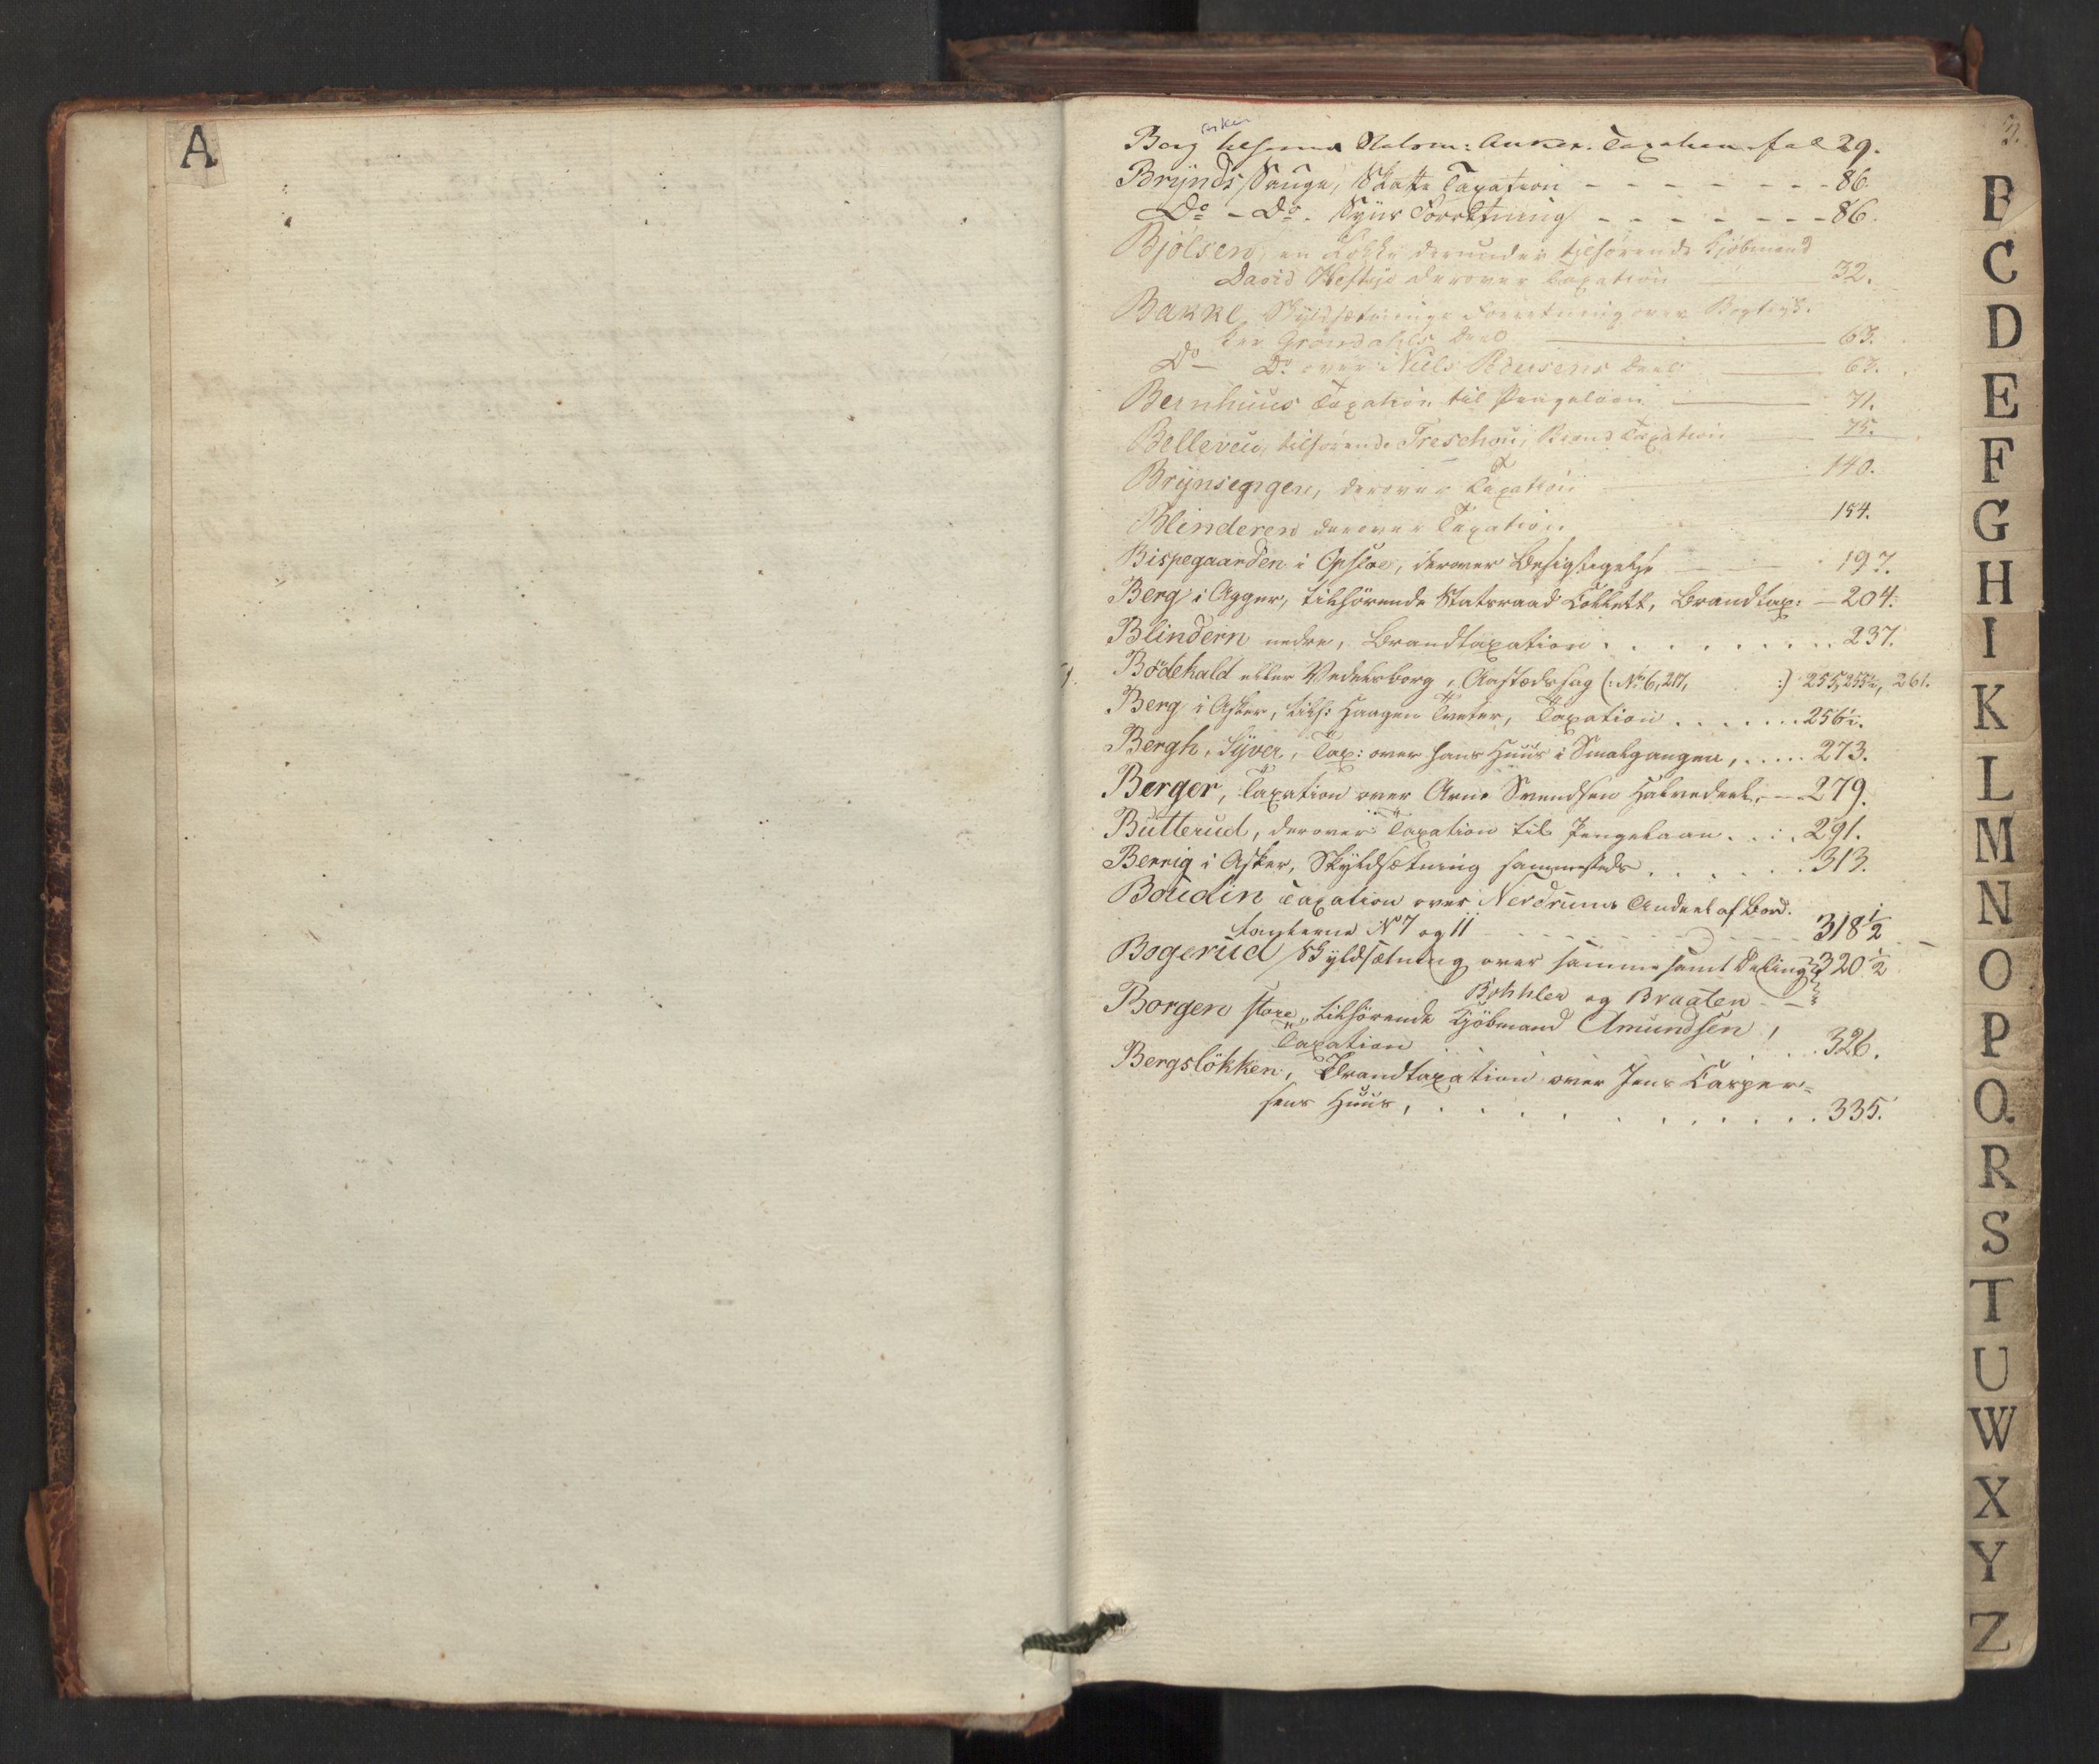 A
2.
Berg tilhørende Kalom: Anker. Taxation fol 29.
Brÿnds Sauge, Skatte Taxation - - - - - - - 86
Do - Do. Syns Forretning - - - - - - - 86.
Bjölsen, en Løkke derunder tilhørende Kjöbmand
David Heftye derover Taxation 32.
Bakke, Skyldsætnings Forretning over Bogtryk-
ker Gröndahls Deel 63.
Do - Do over Niels Pedersens Deel 63.
Bernhuus Taxation til Pengelaan 71.
Belleveu, tilhørende Treschou, Brand Taxation 75.
Brÿnsengen, derover Taxation 140.
Blinderen derover Taxation 154.
Bispegaarden i Opsloe, derover Besigtigelse 197.
Berg i Agger, tilhörende Statsraad Collett, Brandtax: - 204.
Blindern nedre, Brandtaxation . . . . . . . . 237.
Bödekald eller Vedelsborg, Aastedssag (: No 6, 217, :) 255, 255½, 261.
Berg i Asker, tilh: Haagen Tveter, Taxation . . . . . . . 256½.
Bergh, Syver, Tax: over hans Huus i Smalgangen, . . . . . 273.
Berger, Taxation over Arne Svendsen Halvedeel, - - 279.
Butterud, derover Taxation til Pengelaan . . . . 291.
Berrig i Asker, Skyldsætning sammesteds . . . . . . 313.
Boudin Taxation over Nerdrums Andeel af Bord-
tomterne No 7 og 11 - - - - - - 318½
Bogerud Skyldsætning over samme samt Deling 320½
Böhhler og Braaten
Borgen store, tilhörende Kjöbmand Amundsen,
Taxation . . . . . . . 326.
Bergslökken, Brandtaxation over Jens Casper=
sens Huus, . . . . . . . . . . . 335.
B
C
D
E
F
G
H
I
K
L
M
N
O
P
Q
R
S
T
U
W
X
Y
Z